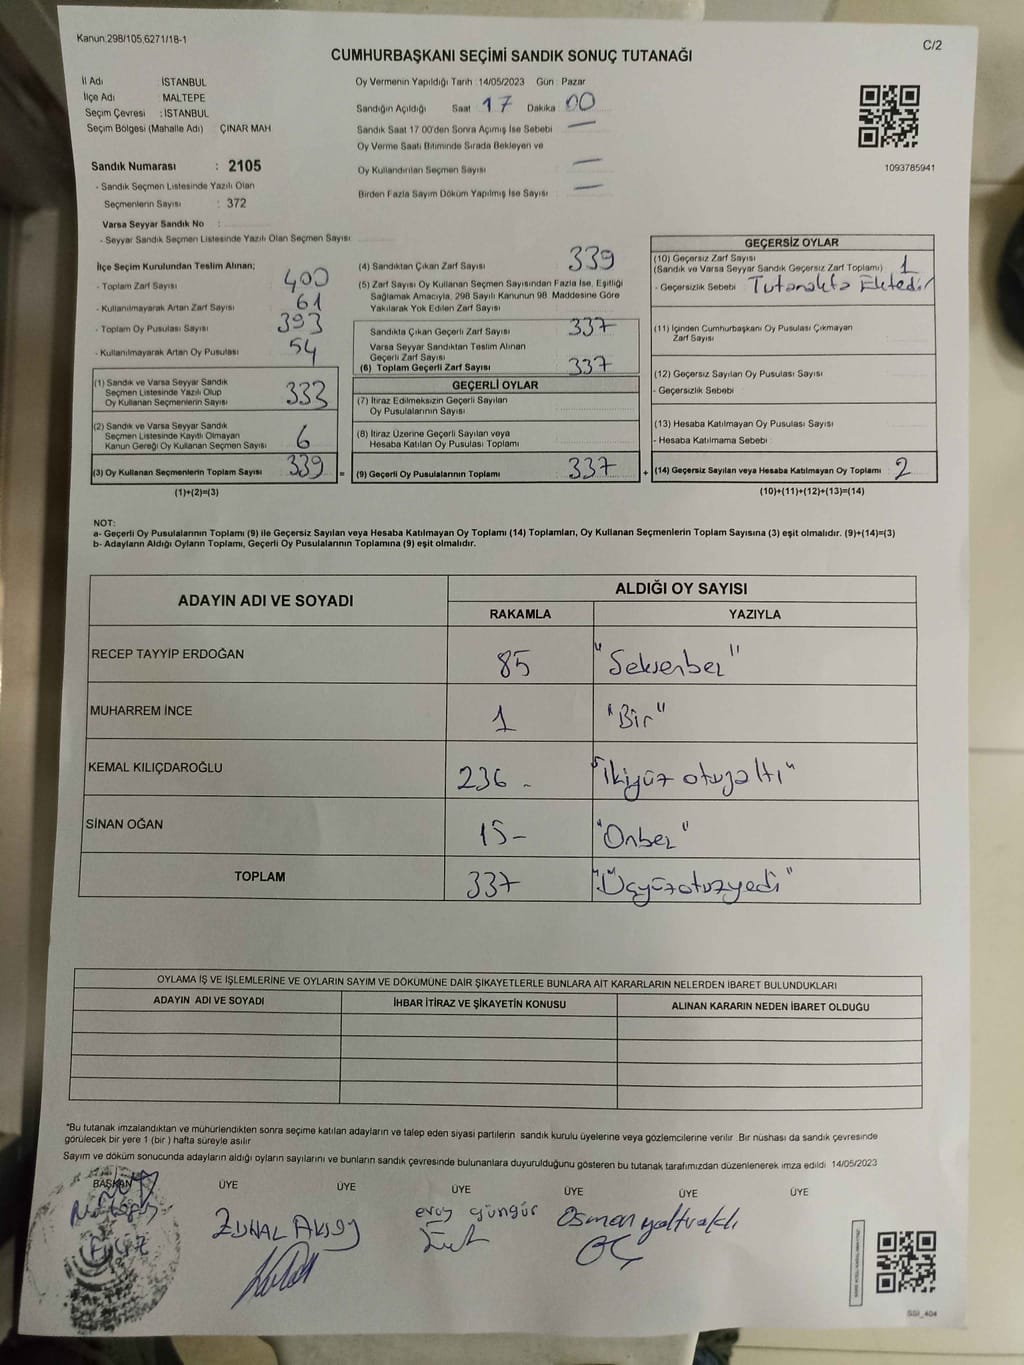 Kanun.298/105,6271/18-1
C/2
CUMHURBAŞKANI SEÇİMİ SANDIK SONUÇ TUTANAĞI
İl Adı İSTANBUL
İlçe Adı MALTEPE
Seçim Çevresi : İSTANBUL
Seçim Bölgesi (Mahalle Adı) ÇINAR MAH
Sandık Numarası : 2105
- Sandık Seçmen Listesinde Yazılı Olan
Seçmenlerin Sayısı : 372
Varsa Seyyar Sandık No :
- Seyyar Sandık Seçmen Listesinde Yazılı Olan Seçmen Sayısı
Oy Vermenin Yapıldığı Tarih :14/05/2023 Gün : Pazar
Sandığın Açıldığı Saat 17 Dakika 00
Sandık Saat 17 00'den Sonra Açımış İse Sebebi —
Oy Verme Saati Bitiminde Sırada Bekleyen ve
Oy Kullandırılan Seçmen Sayısı —
Birden Fazla Sayım Döküm Yapılmış İse Sayısı —
1093785941
İlçe Seçim Kurulundan Teslim Alınan;
- Toplam Zarf Sayısı 400
- Kullanılmayarak Artan Zarf Sayısı 61
- Toplam Oy Pusulası Sayısı 393
- Kullanılmayarak Artan Oy Pusulası 54
(1) Sandık ve Varsa Seyyar Sandık
Seçmen Listesinde Yazılı Olup
Oy Kullanan Seçmenlerin Sayısı 333
(2) Sandık ve Varsa Seyyar Sandık
Seçmen Listesinde Kayıtlı Olmayan
Kanun Gereği Oy Kullanan Seçmen Sayısı 6
(3) Oy Kullanan Seçmenlerin Toplam Sayısı 339
(1)+(2)=(3)
(4) Sandıktan Çıkan Zarf Sayısı 339
(5) Zarf Sayısı Oy Kullanan Seçmen Sayısından Fazla İse, Eşitliği
Sağlamak Amacıyla, 298 Sayılı Kanunun 98. Maddesine Göre
Yakılarak Yok Edilen Zarf Sayısı
Sandıkta Çıkan Geçerli Zarf Sayısı 337
Varsa Seyyar Sandıktan Teslim Alınan
Geçerli Zarf Sayısı
(6) Toplam Geçerli Zarf Sayısı 337
GEÇERLİ OYLAR
(7) İtiraz Edilmeksizin Geçerli Sayılan
Oy Pusulalarının Sayısı
(8) İtiraz Üzerine Geçerli Sayılan veya
Hesaba Katılan Oy Pusulası Toplamı
= (9) Geçerli Oy Pusulalarının Toplamı 337
GEÇERSİZ OYLAR
(10) Geçersiz Zarf Sayısı
(Sandık ve Varsa Seyyar Sandık Geçersiz Zarf Toplamı) 1
- Geçersizlik Sebebi Tutanakta Ektedir
(11) İçinden Cumhurbaşkanı Oy Pusulası Çıkmayan
Zarf Sayısı
(12) Geçersiz Sayılan Oy Pusulası Sayısı
- Geçersizlik Sebebi
(13) Hesaba Katılmayan Oy Pusulası Sayısı
- Hesaba Katılmama Sebebi
+ (14) Geçersiz Sayılan veya Hesaba Katılmayan Oy Toplamı 2
(10)+(11)+(12)+(13)=(14)
NOT:
a- Geçerli Oy Pusulalarının Toplamı (9) ile Geçersiz Sayılan veya Hesaba Katılmayan Oy Toplamı (14) Toplamları, Oy Kullanan Seçmenlerin Toplam Sayısına (3) eşit olmalıdır. (9)+(14)=(3)
b- Adayların Aldığı Oyların Toplamı, Geçerli Oy Pusulalarının Toplamına (9) eşit olmalıdır.
ADAYIN ADI VE SOYADI
ALDIĞI OY SAYISI
RAKAMLA YAZIYLA
RECEP TAYYİP ERDOĞAN 85 "Seksenbeş"
MUHARREM İNCE 1 "Bir"
KEMAL KILIÇDAROĞLU 236 - "İkiyüz otuzaltı"
SİNAN OĞAN 15- "Onbeş"
TOPLAM 337 "Üçyüzotuzyedi"
OYLAMA İŞ VE İŞLEMLERİNE VE OYLARIN SAYIM VE DÖKÜMÜNE DAİR ŞİKAYETLERLE BUNLARA AİT KARARLARIN NELERDEN İBARET BULUNDUKLARI
ADAYIN ADI VE SOYADI İHBAR İTİRAZ VE ŞİKAYETİN KONUSU ALINAN KARARIN NEDEN İBARET OLDUĞU
*Bu tutanak imzalandıktan ve mühürlendikten sonra seçime katılan adayların ve talep eden siyasi partilerin sandık kurulu üyelerine veya gözlemcilerine verilir. Bir nüshası da sandık çevresinde
görülecek bir yere 1 (bir ) hafta süreyle asılır
Sayım ve döküm sonucunda adayların aldığı oyların sayılarını ve bunların sandık çevresinde bulunanlara duyurulduğunu gösteren bu tutanak tarafımızdan düzenlenerek imza edildi 14/05/2023
BAŞKAN ÜYE ÜYE ÜYE ÜYE ÜYE ÜYE
ZÜHAL AKSOY eray güngör Osman yaltıraklı
SSI_404